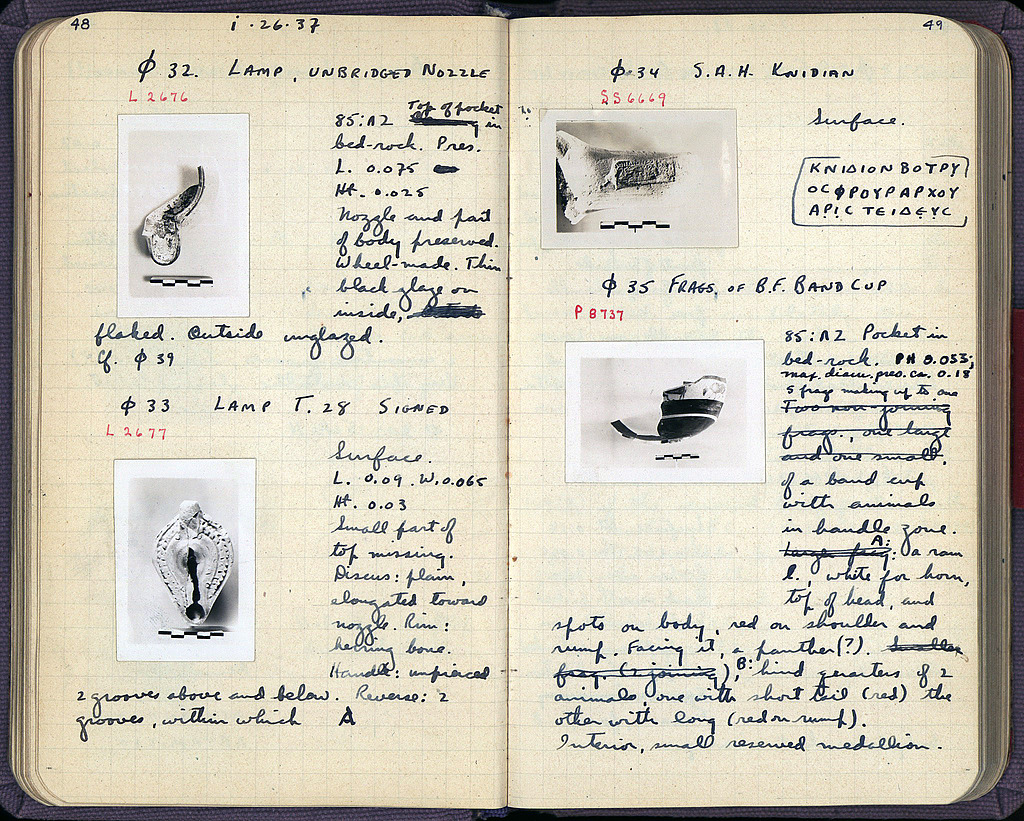 48
i · 26 · 37
φ 32. LAMP, UNBRIDGED NOZZLE
L 2676
85:ΛΖ Top of pocket in
bed-rock. Pres.
L. 0.075
Ht. 0.025
Nozzle and part
of body preserved.
Wheel-made. Thin
black glaze on
inside,
flaked. Outside unglazed.
Cf. φ 39
φ 33 LAMP T. 28 SIGNED
L 2677
Surface.
L. 0.09. W. 0.065
Ht. 0.03
Small part of
top missing.
Discus: plain,
elongated toward
nozzle. Rim:
herring bone.
Handle: unpierced
2 grooves above and below. Reverse: 2
grooves, within which A
49
φ 34 S.A.H. KNIDIAN
SS 6669
Surface.
ΚΝΙΔΙΟΝ ΒΟΤΡΥ
ΟC ΦΡΟΥΡΑΡΧΟΥ
ΑΡΙC ΤΕΙΔΕΥC
φ 35 FRAGS. OF B.F. BAND CUP
P 8737
85:ΛΖ Pocket in
bed-rock. PH 0.053;
max. diam. pres. ca. 0.18
5 frags making up to one
Two non-joining
frags., one large
and one small,
of a band cup
with animals
in handle zone.
Larger frag: A: a ram
l., white for horn,
top of head, and
spots on body, red on shoulder and
rump. Facing it, a panther(?). Smaller
frag. (2 joining), B: hind quarters of 2
animals, one with short tail (red) the
other with long (red on rump).
Interior, small reserved medallion.